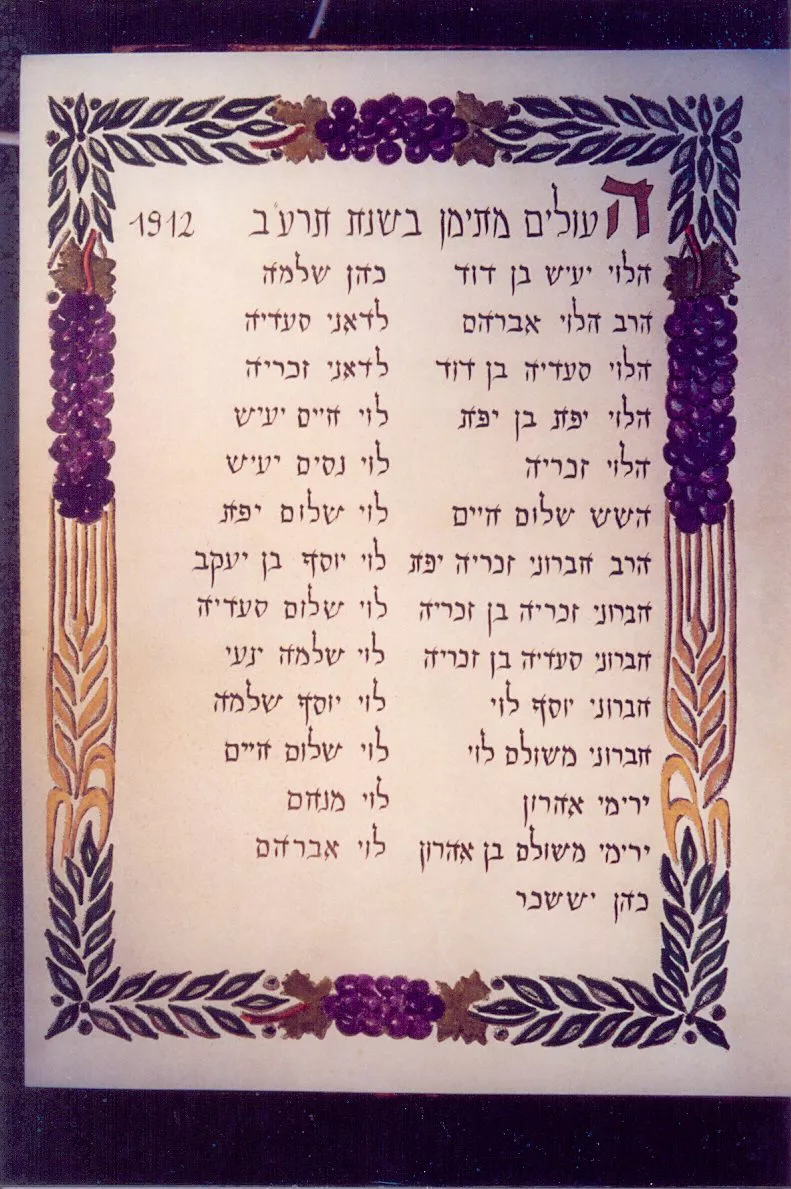 העולים מתימן בשנת תרע"ב 1912
הלוי יעיש בן דוד
הרב הלוי אברהם
הלוי סעדיה בן דוד
הלוי יפת בן יפת
הלוי זכריה
השש שלום חיים
הרב חברוני זכריה יפת
חברוני זכריה בן זכריה
חברוני סעדיה בן זכריה
חברוני יוסף לוי
חברוני משולם לוי
ירימי אהרון
ירימי משולם בן אהרון
כהן יששכר
כהן שלמה
לדאני סעדיה
לדאני זכריה
לוי חיים יעיש
לוי נסים יעיש
לוי שלום יפת
לוי יוסף בן יעקב
לוי שלום סעדיה
לוי שלמה ינעי
לוי יוסף שלמה
לוי שלום חיים
לוי מנחם
לוי אברהם